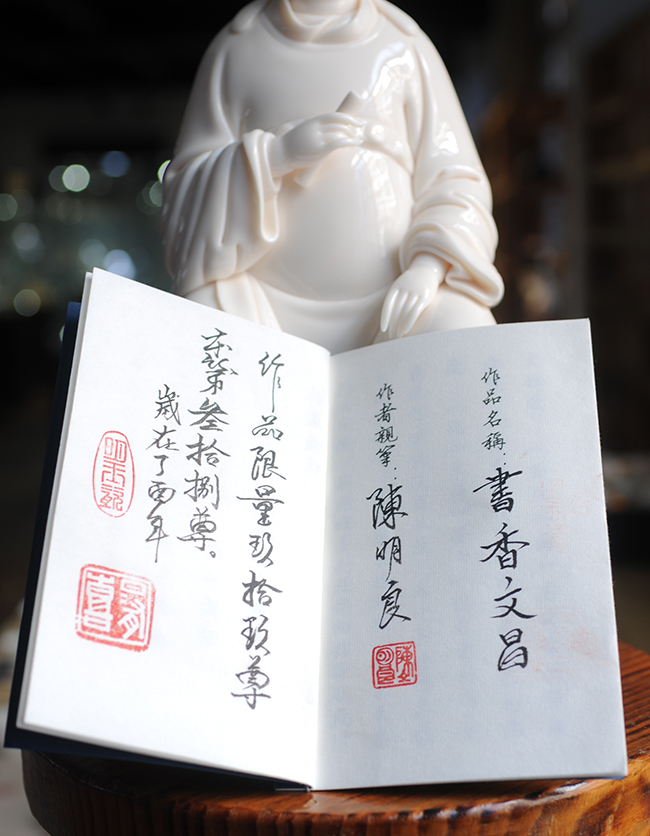 作品名稱：書香文昌
作者親筆：陳明良
作品限量玖拾玖尊
本第叁拾捌尊。
歲在丁酉年